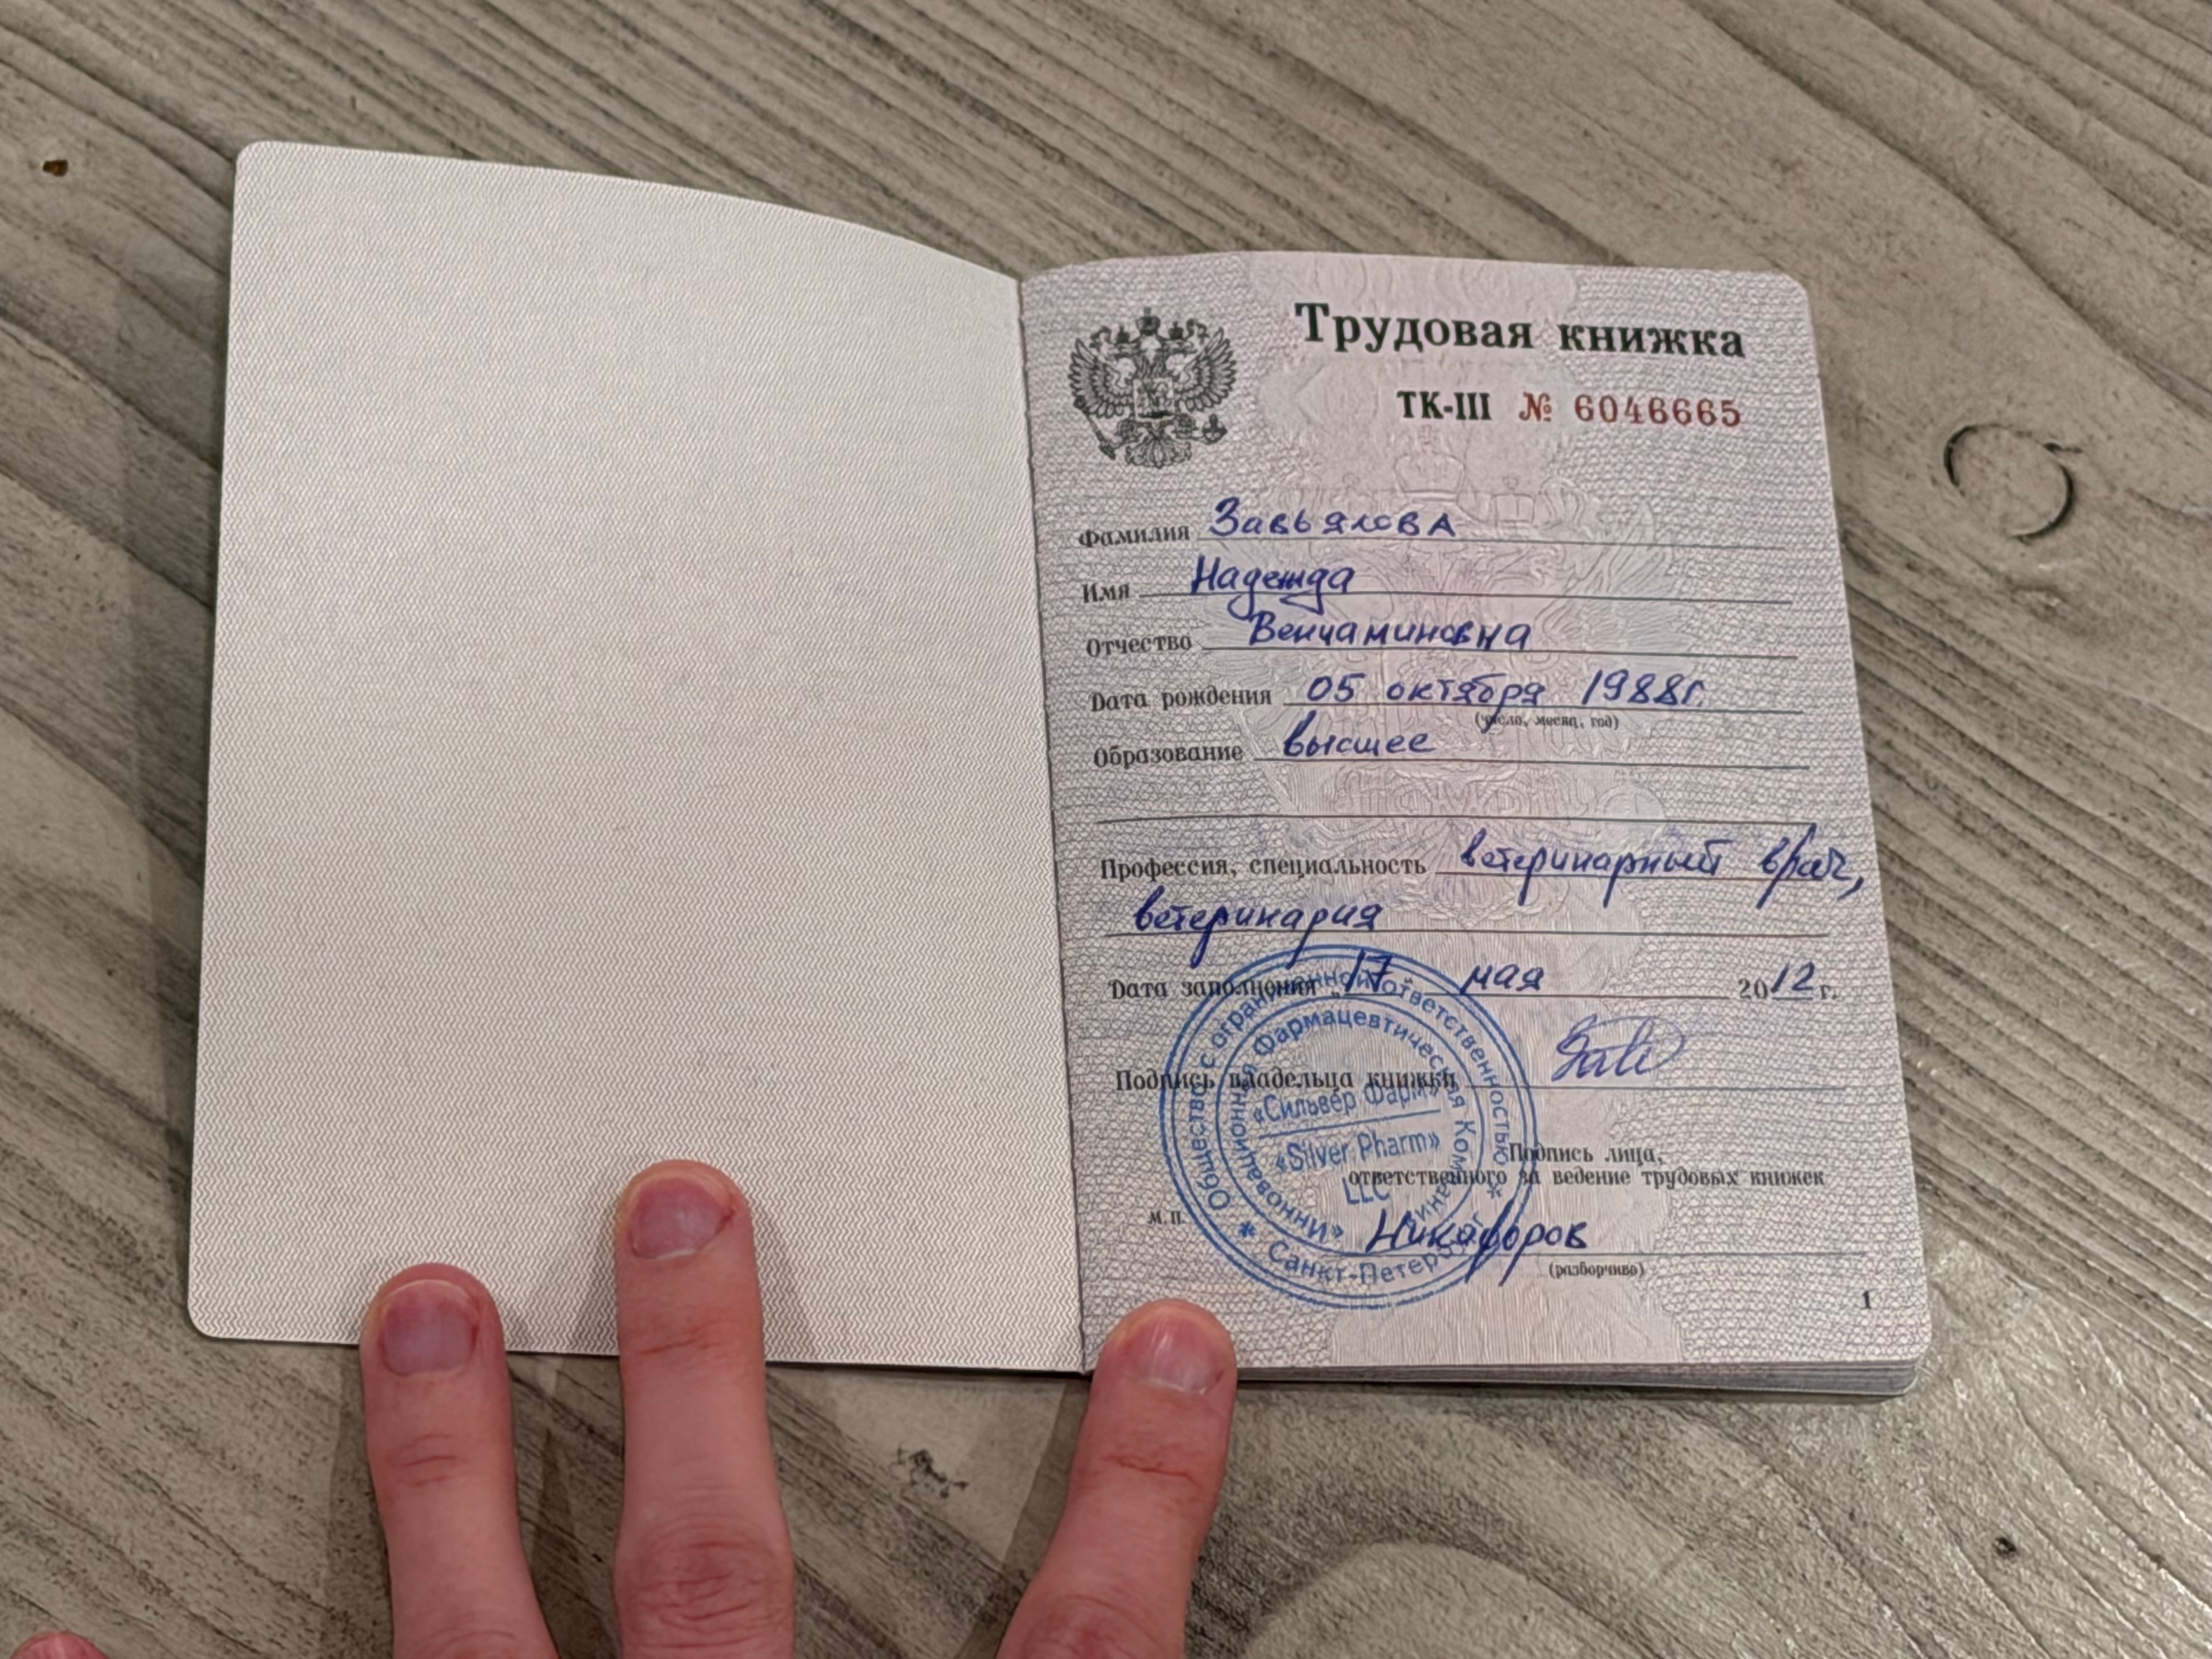 Трудовая книжка
ТК-III № 6046665
Фамилия Завьялова
Имя Надежда
Отчество Вениаминовна
Дата рождения 05 октября 1988г.
(число, месяц, год)
Образование высшее
Профессия, специальность ветеринарный врач,
ветеринария
Дата заполнения „17 мая 2012 г.
Подпись владельца книжки
Подпись лица,
ответственного за ведение трудовых книжек
М.П. Никофоров
(разборчиво)
1
Общество с ограниченной ответственностью
* Санкт-Петербург *
«Инновационная Фармацевтическая Компания
«Сильвер Фарм»
«Silver Pharm»
LLC